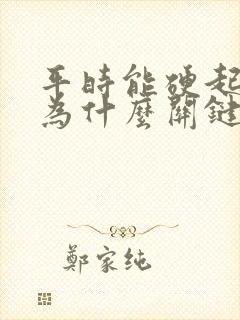 平時能硬起
為什麼關鍵
鄭家純